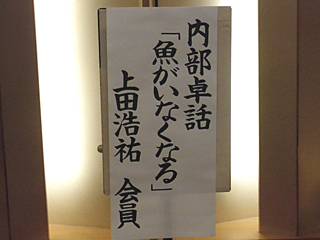 内部卓話
「魚がいなくなる」
上田浩祐 会員